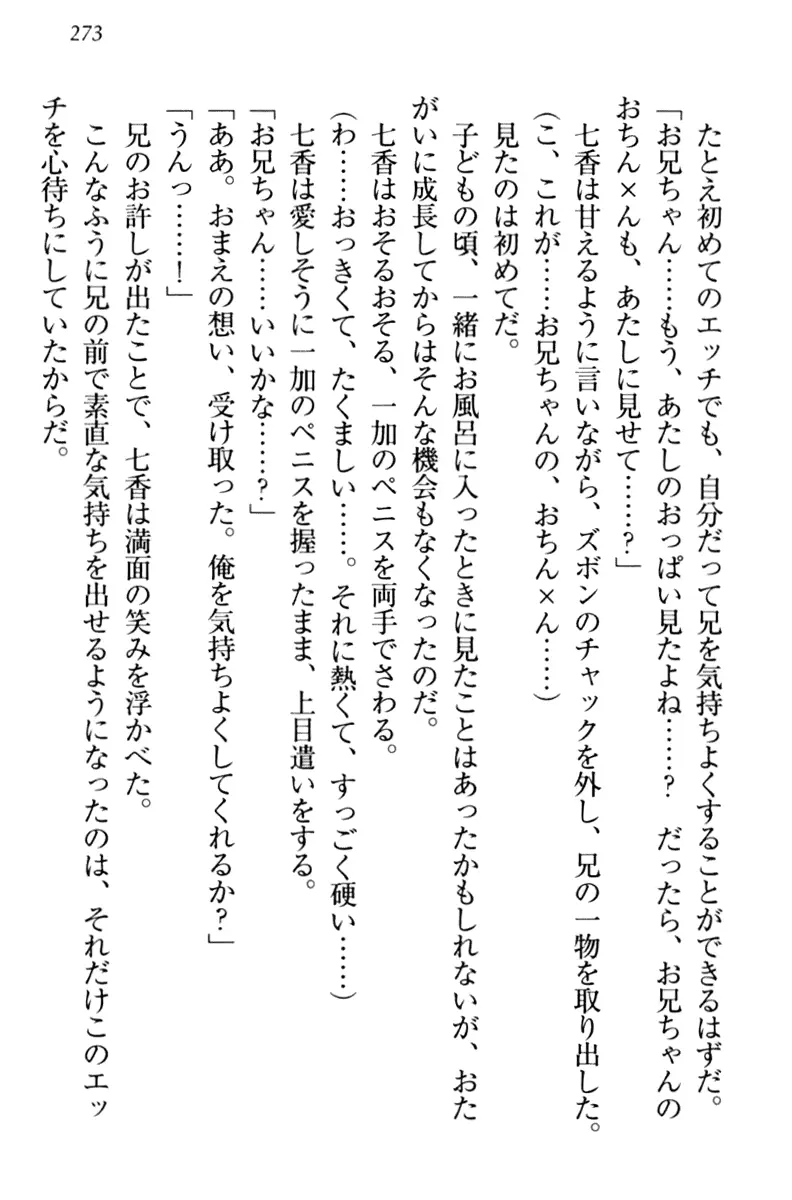 273
たとえ初めてのエッチでも、自分だって兄を気持ちよくすることができるはずだ。
「お兄ちゃん……もう、あたしのおっぱい見たよね……?　だったら、お兄ちゃんの
おちん×んも、あたしに見せて……?」
七香は甘えるように言いながら、ズボンのチャックを外し、兄の一物を取り出した。
(こ、これが……お兄ちゃんの、おちん×ん……)
見たのは初めてだ。
子どもの頃、一緒にお風呂に入ったときに見たことはあったかもしれないが、おた
がいに成長してからはそんな機会もなくなったのだ。
七香はおそるおそる、一加のペニスを両手でさわる。
(わ……おっきくて、たくましい……。それに熱くて、すっごく硬い……)
七香は愛しそうに一加のペニスを握ったまま、上目遣いをする。
「お兄ちゃん……いいかな……?」
「ああ。おまえの想い、受け取った。俺を気持ちよくしてくれるか?」
「うんっ……!」
兄のお許しが出たことで、七香は満面の笑みを浮かべた。
こんなふうに兄の前で素直な気持ちを出せるようになったのは、それだけこのエッ
チを心待ちにしていたからだ。